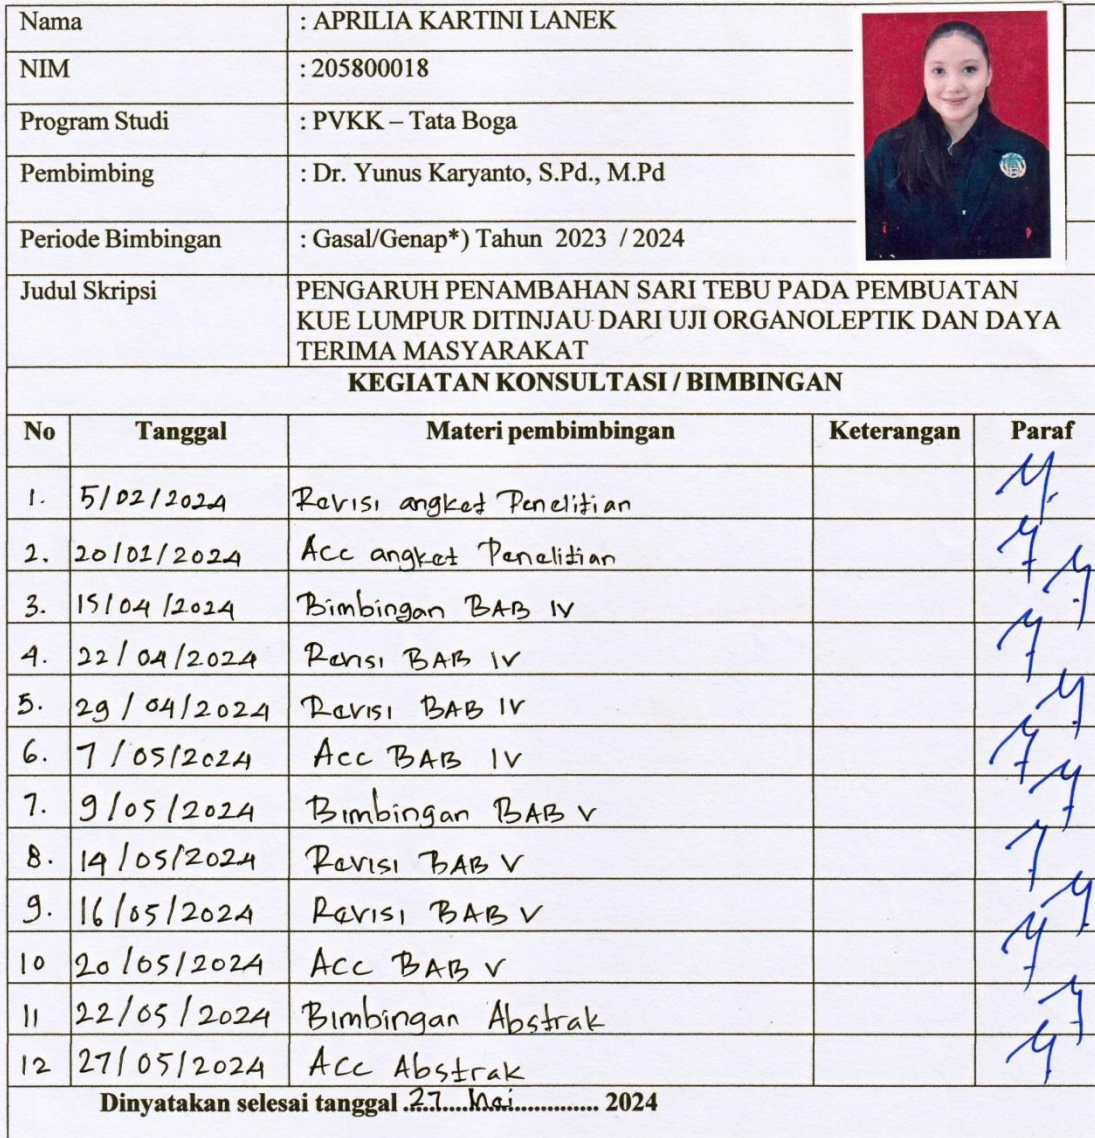 Nama : APRILIA KARTINI LANEK
NIM : 205800018
Program Studi : PVKK – Tata Boga
Pembimbing : Dr. Yunus Karyanto, S.Pd., M.Pd
Periode Bimbingan : Gasal/Genap*) Tahun 2023 / 2024
Judul Skripsi PENGARUH PENAMBAHAN SARI TEBU PADA PEMBUATAN
KUE LUMPUR DITINJAU DARI UJI ORGANOLEPTIK DAN DAYA
TERIMA MASYARAKAT
KEGIATAN KONSULTASI / BIMBINGAN
No Tanggal Materi pembimbingan Keterangan Paraf
1. 5/02/2024 Revisi angket Penelitian
2. 20/02/2024 Acc angket Penelitian
3. 15/04/2024 Bimbingan BAB IV
4. 22/04/2024 Revisi BAB IV
5. 29/04/2024 Revisi BAB IV
6. 7/05/2024 Acc BAB IV
7. 9/05/2024 Bimbingan BAB V
8. 14/05/2024 Revisi BAB V
9. 16/05/2024 Revisi BAB V
10 20/05/2024 Acc BAB V
11 22/05/2024 Bimbingan Abstrak
12 27/05/2024 Acc Abstrak
Dinyatakan selesai tanggal .27....Mei.............. 2024